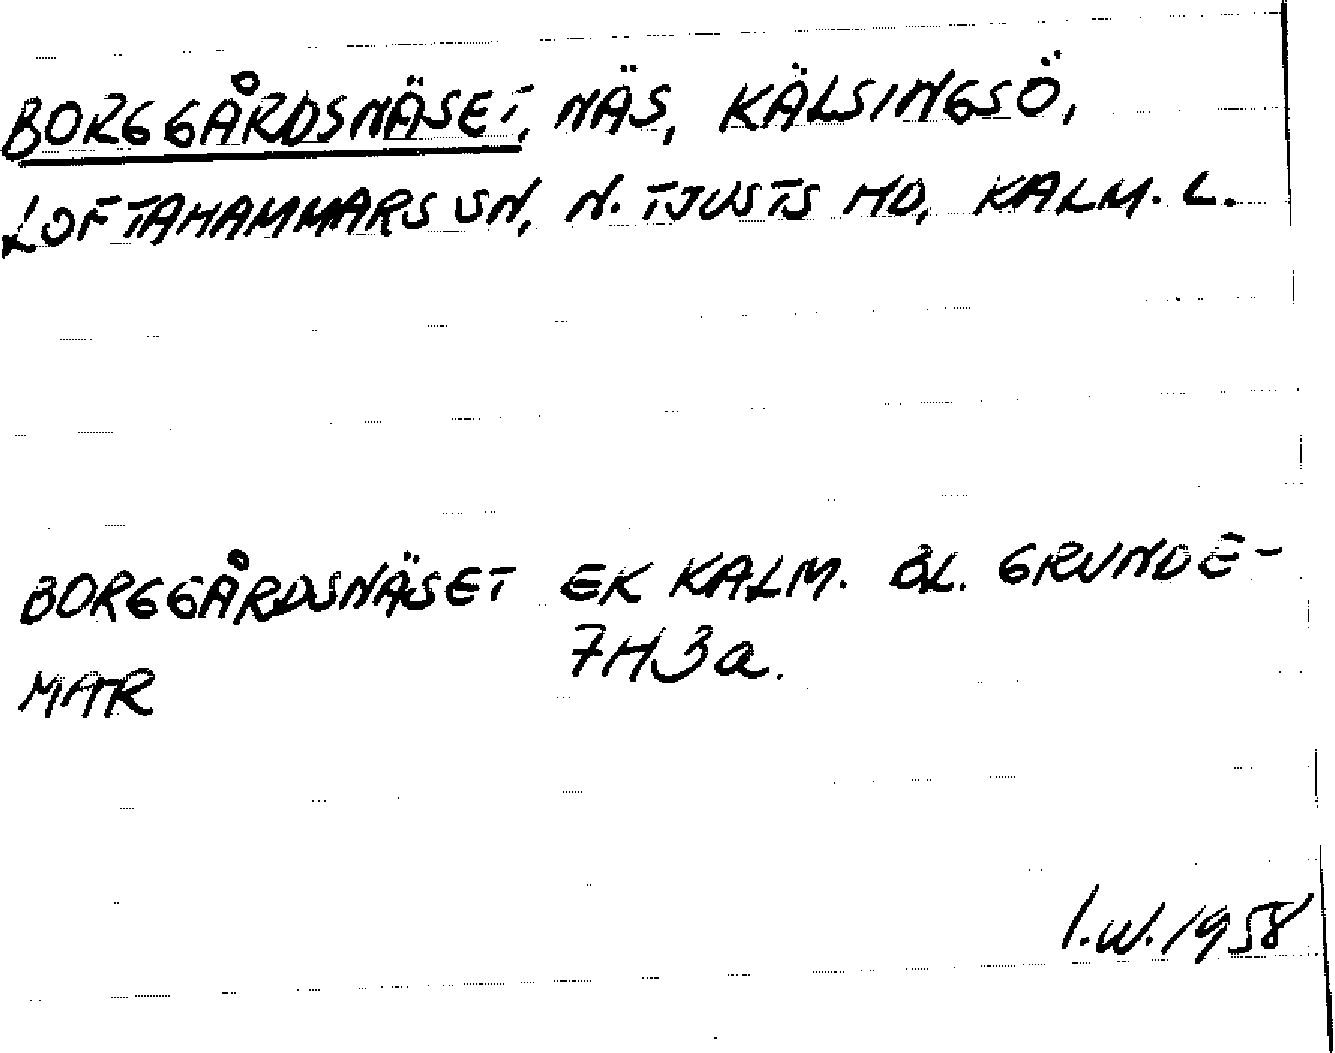 BORGGÅRDSNÄSET, NÄS, KÄLSINGSÖ,
LOFTAHAMMARS SN, N. TJUSTS HD, KALM. L.
BORGGÅRDSNÄSET EK KALM. BL. GRUNDE-
MAR 7H3a.
I.W. 1958